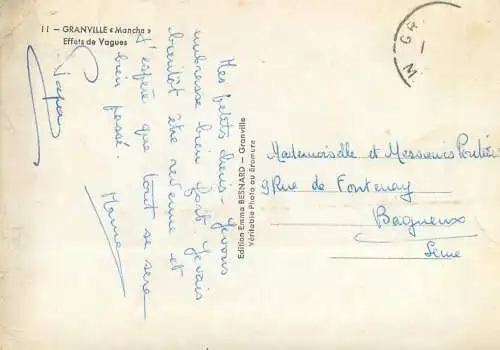 11 — GRANVILLE « Manche »
Effets de Vagues
Mes petits cheris - Je vous
embrasse bien fort. Je vais
bientôt être revenue et
j'espère que tout se sera
bien passé.
Mame
Papa
Edition Emma BESNARD — Granville
Véritable Photo au Bromure
Mademoiselle et Messieurs
9 Rue de Fontenay
Bagneux
Seine